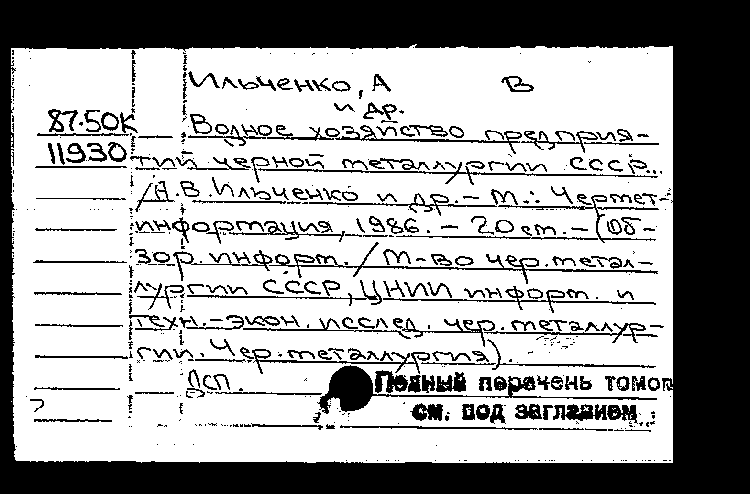 Ильченко, А В
и др.
87-50К Водное хозяйство предприя-
11930 тий черной металлургии СССР...
/А.В. Ильченко и др. – М.: Чермет-
информация, 1986. – 20 см. – (Об-
зор. информ. / М-во чер. метал-
лургии СССР, ЦНИИ информ. и
техн.-экон. исслед. чер. металлур-
гии. Чер. металлургия).
Дсп. Полный перечень томов
см. под заглавием